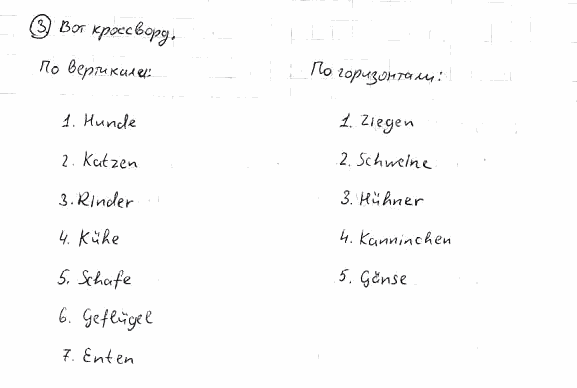 ③ Вот кроссворд.
По вертикали:
1. Hunde
2. Katzen
3. Rinder
4. Kühe
5. Schafe
6. Geflügel
7. Enten
По горизонтали:
1. Ziegen
2. Schweine
3. Hühner
4. Kanninchen
5. Gänse